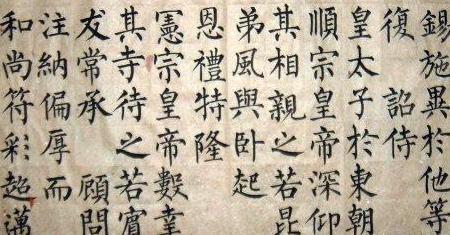 錫施異於他等
復 詔侍
皇太子於東朝
順宗皇帝深仰
其相親之若昆
弟風與卧起
恩禮特隆
憲宗皇帝數幸
其寺待之若賓
友常承 顧問
注納偏厚而
和尚符彩超邁